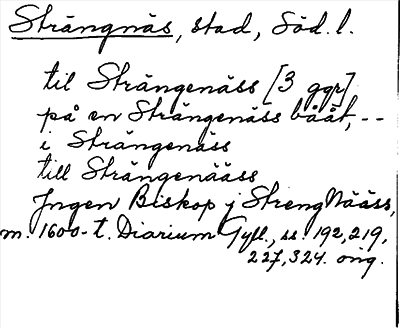 Strängnäs, stad, Söd. l.
til Strängenäss [3 ggr]
på en Strängenäss bååt, --
i Strängenäss
till Strängenääss
Jngen Biskop j StrengNääss,
m. 1600-t. Diarium Gyll., ss. 192, 219,
227, 324. orig.